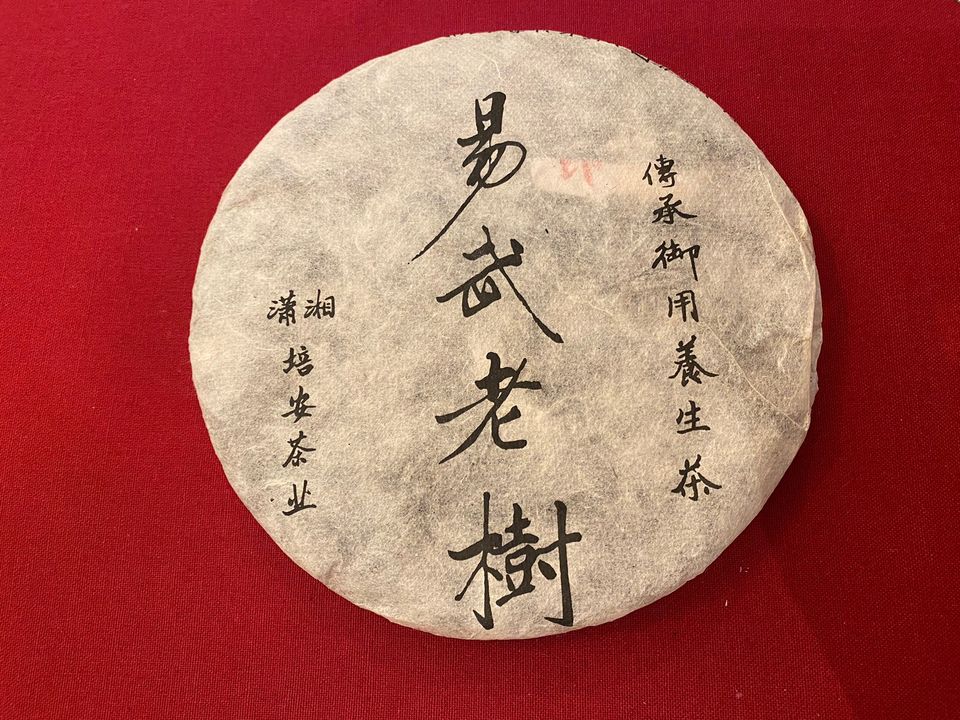 傳承御用養生茶
易武老樹
瀟湘
培安茶业